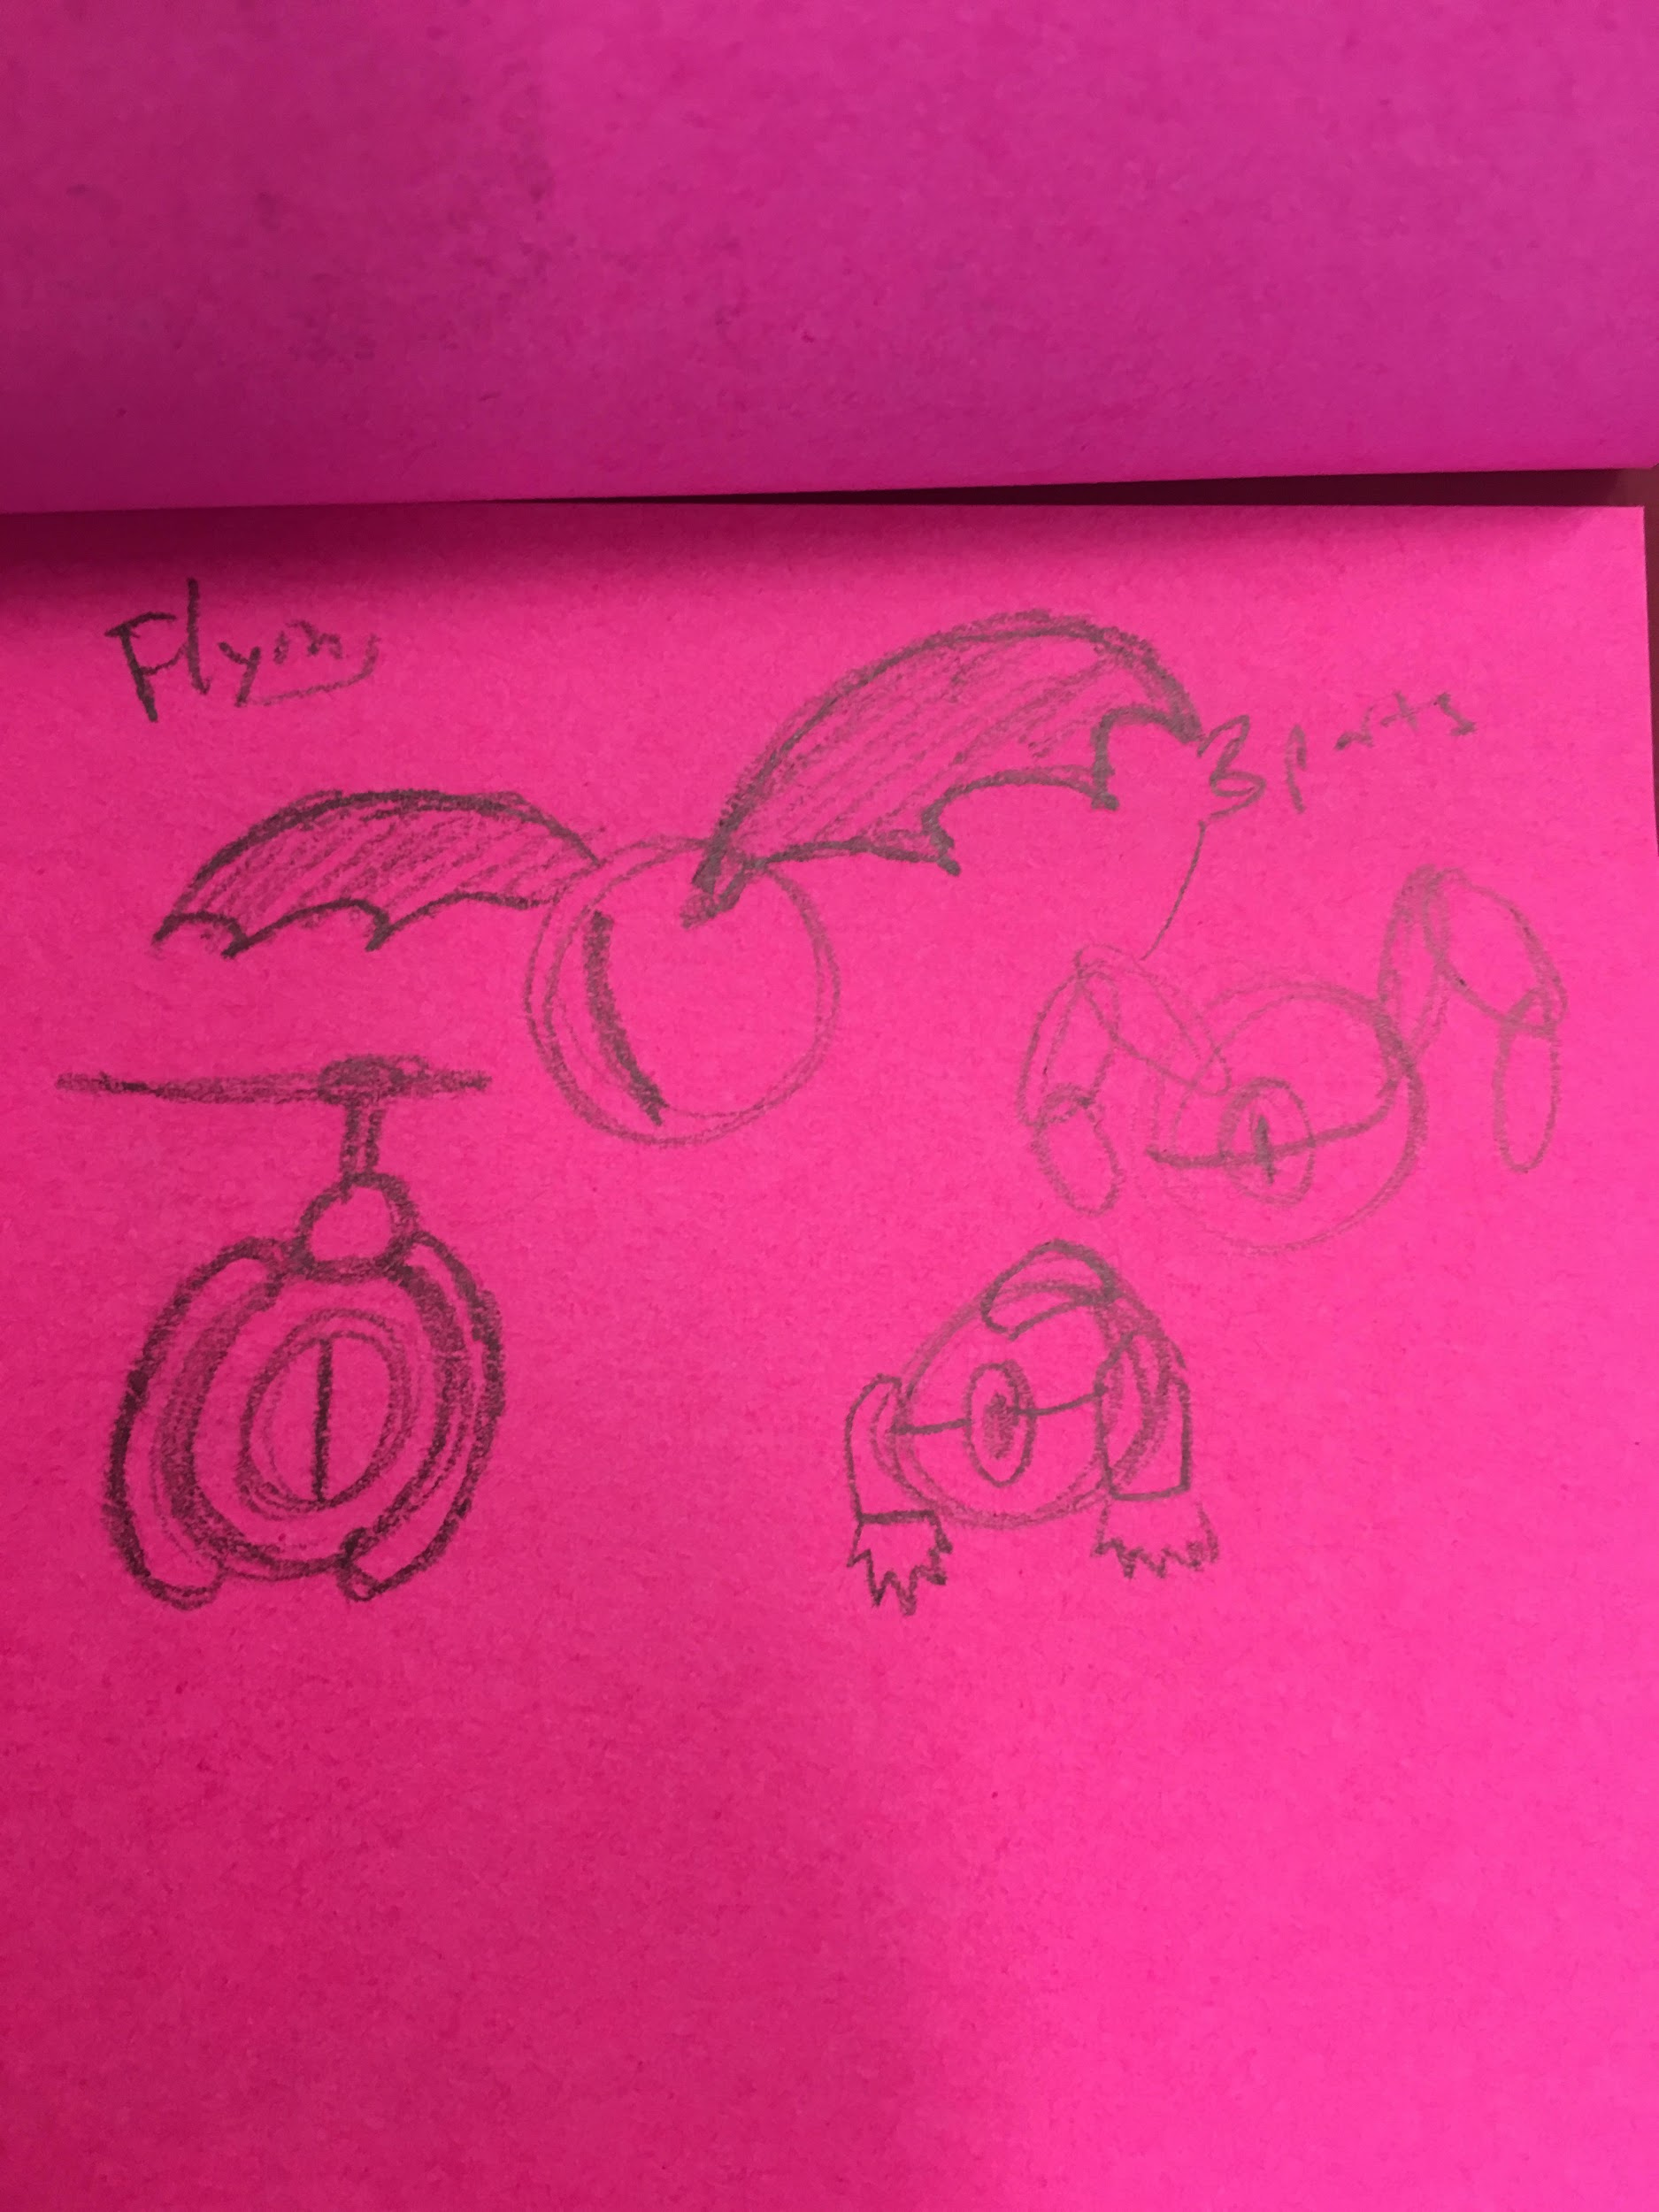 Flying
3 parts